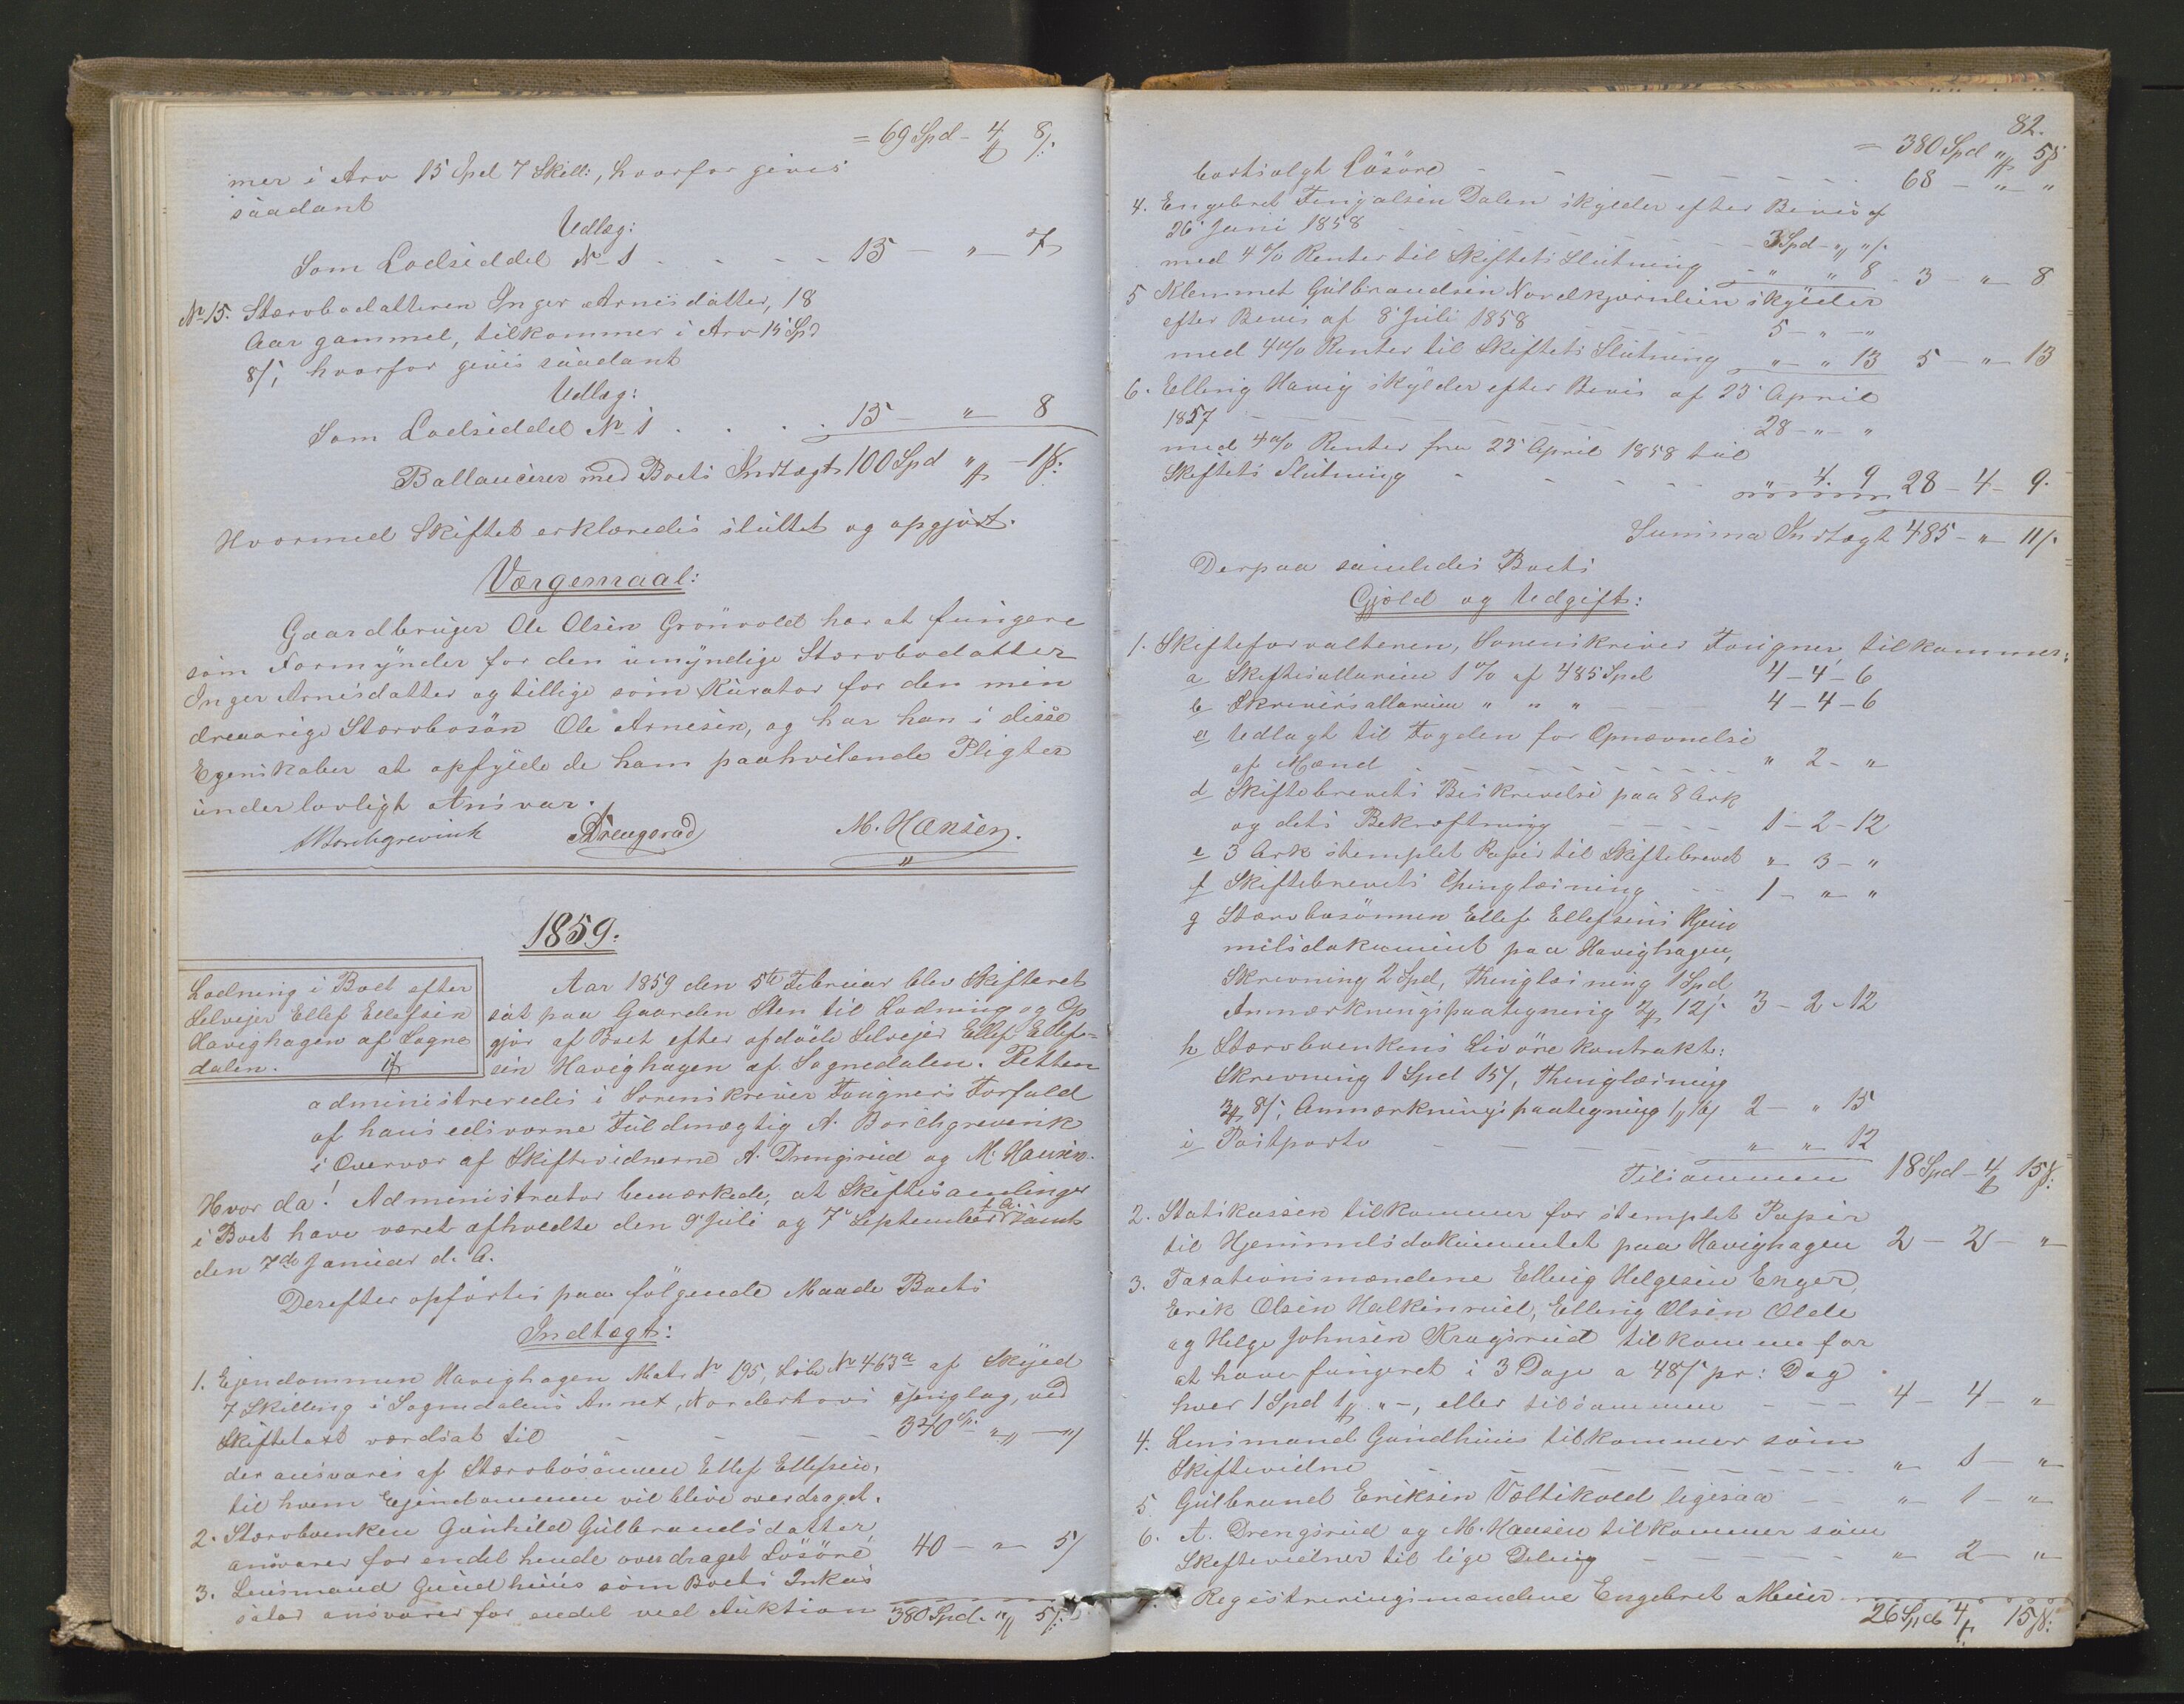 = 69 Spd - 4 ℔ 8/:
mer i Arv 15 Spd 7 Skill:, hvorfor gives
saadant
Udlæg:
Som Lodseddel No 1 - - - - 15 - " - 7
No 15. Stervbodatteren Inger Arnesdatter, 18
Aar gammel, tilkommer i Arv 15 Spd
8/, hvorfor gives saadant
Udlæg:
Som Lodseddel No 1 . . . . 15 - " - 8
Ballancerer med Boets Indtægt 100 Spd " ℔ - 1 /:
Hvormed Skiftet erklæredes sluttet og opgjort.
Værgemaal:
Gaardbruger Ole Olsen Grönvold har at fungere
som Formynder for den umyndige Stervbodatter
Inger Arnesdatter og tillige som Kurator for den min
dreaarige Stervbosön Ole Arnesen, og har han i disse
Egenskaber at opfylde de ham paahvilende Pligter
under lovligt Ansvar.
A Borchgrevink ADrengsrud M. Hansen.
1859.
Lodning i Boet efter
Selveier Ellef Ellefsen
Havighagen af Sogne
dalen.
Aar 1859 den 5te Februar blev Skifteret
sat paa Gaarden Sten til Lodning og Op
gjör af Boet efter afdöde Selveier Ellef Ellef-
sen Havighagen af Sognedalen. Retten
administreredes i Sorenskriver Fougners Forfald
af hans edsvorne Fuldmægtig A. Borchgrevink
i Overvær af Skiftevidnerne A. Drengsrud og M. Hansen.
Hvor da! Administrator bemærkede, at Skiftesamlinger
i Boet have været afholdte den 9' Juli og 7' September f. A. samt
den 7de Januar d. A.
Derefter opförtes paa fölgende Maade Boets
Indtægt:
1. Ejendommen Havighagen Matr No 195, Löbe No 463a af Skyld
7 Skilling i Sognedalens Annex, Norderhovs Thinglag, ved
Skiftetaxt værdsat til - - - - 340 Sp. " -"/
der ansvares af Stervbosönnen Ellef Ellefsen,
til hvem Ejendommen vil blive overdraget.
2. Stervboenken Gunhild Gulbrandsdatter
ansvarer for endel hende overdraget Lösöre 40 - " - 5/
3. Lensmand Gundhuus som Boets Inkas
sator ansvarer for endel ved Auktion 380 Spd. " ℔ 5/:
82.
= 380 Spd " ℔ 5/
bortsolgt Lösöre - - - - - - - 68 - " - "
4. Engebret Fingalsen Dalen skylder efter Bevis af
26' Juni 1858 - - - - - - 3 Spd - " "/.
med 4 % Renter til Skiftets Slutning - " " 8 - 3 - " 8
5 Klemmet Gulbrandsen Nordkjernlien skylder
efter Bevis af 8' Juli 1858 - - - - 5 - " - "
med 4 % Renter til Skiftets Slutning " - " 13 5 - " - 13
6. Elling Havig skylder efter Bevis af 23' April
1857 - - - - - - 28 - " - "
med 4 % Renter fra 23' April 1858 til
Skiftets Slutning - - - - - - " 4. 9 28 - 4 - 9.
Summa Indtægt 485 - " - 11/.
Derpaa samledes Boets
Gjæld og Udgift:
1. Skifteforvalteren, Sorenskriver Fougner, tilkommer:
a Skiftesallarium 1 % af 485 Spd 4 - 4 - 6
b Skriversallarium " " " - - 4 - 4 - 6
c Udlagt til Fogden for Opnævnelse
af Mænd - - - - - - - " 2 - "
d Skiftebrevets Beskrivelse paa 8 Ark
og dets Bekræftning - - - - 1 - 2 - 12
e 3 Ark stemplet Papir til Skiftebrevet " 3 - "
f Skiftebrevets Thinglæsning - - 1 - " "
g Stervbosönnen Ellef Ellefsens Hjem
melsdokument paa Havighagen,
Skrivning 2 Spd, Thinglæsning 1 Spd
Anmærkningspaategning 2 ℔ 12/. 3 - 2 - 12
h Stervboenkens Livörekontrakt:
Skrivning 1 Spd 15/, Thinglæsning
3 ℔ 8/, Anmærkningspaategning 1 ℔ 16/ 2 - " 15
i Postporto - - - " " 12
Tilsammen 18 Spd - 4 ℔ 15/:
2. Statskassen tilkommer for stemplet Papir
til Hjemmelsdokumentet paa Havighagen 2 - 2 - "
3. Taxationsmændene Elling Helgesen Enger,
Erik Olsen Halkinrud, Elling Olsen Olde
og Helge Johnsen Kragsrud tilkomme for
at have fungeret i 3 Dage a 48/ pr: Dag
hver 1 Spd 1 ℔ " -, eller tilsammen - - - 4 - 4 - "
4. Lensmand Gundhuus tilkommer som
Skiftevidne - - - - - - " 1 - "
5 Gulbrand Eriksen Væltskold ligesaa - " - 1 - "
6. A. Drengsrud og M. Hansen tilkommer som
Skiftevidner til lige Deling - - - - " 2 - "
7. Registreringsmændene Engebret Moen
26 Spd 4 ℔ 15/: